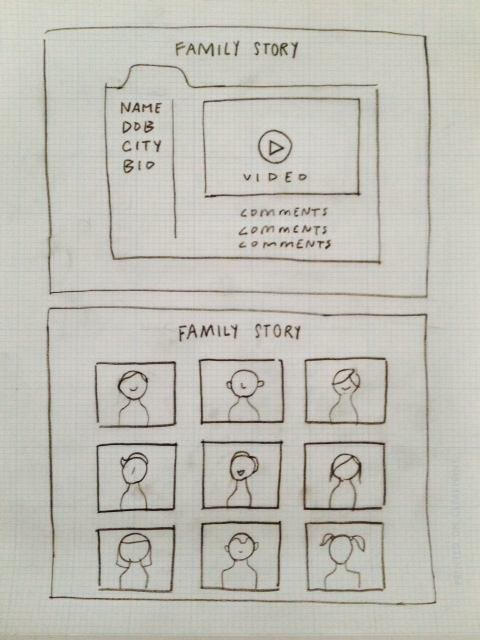 FAMILY STORY
NAME
DOB
CITY
BIO
VIDEO
COMMENTS
COMMENTS
COMMENTS
FAMILY STORY